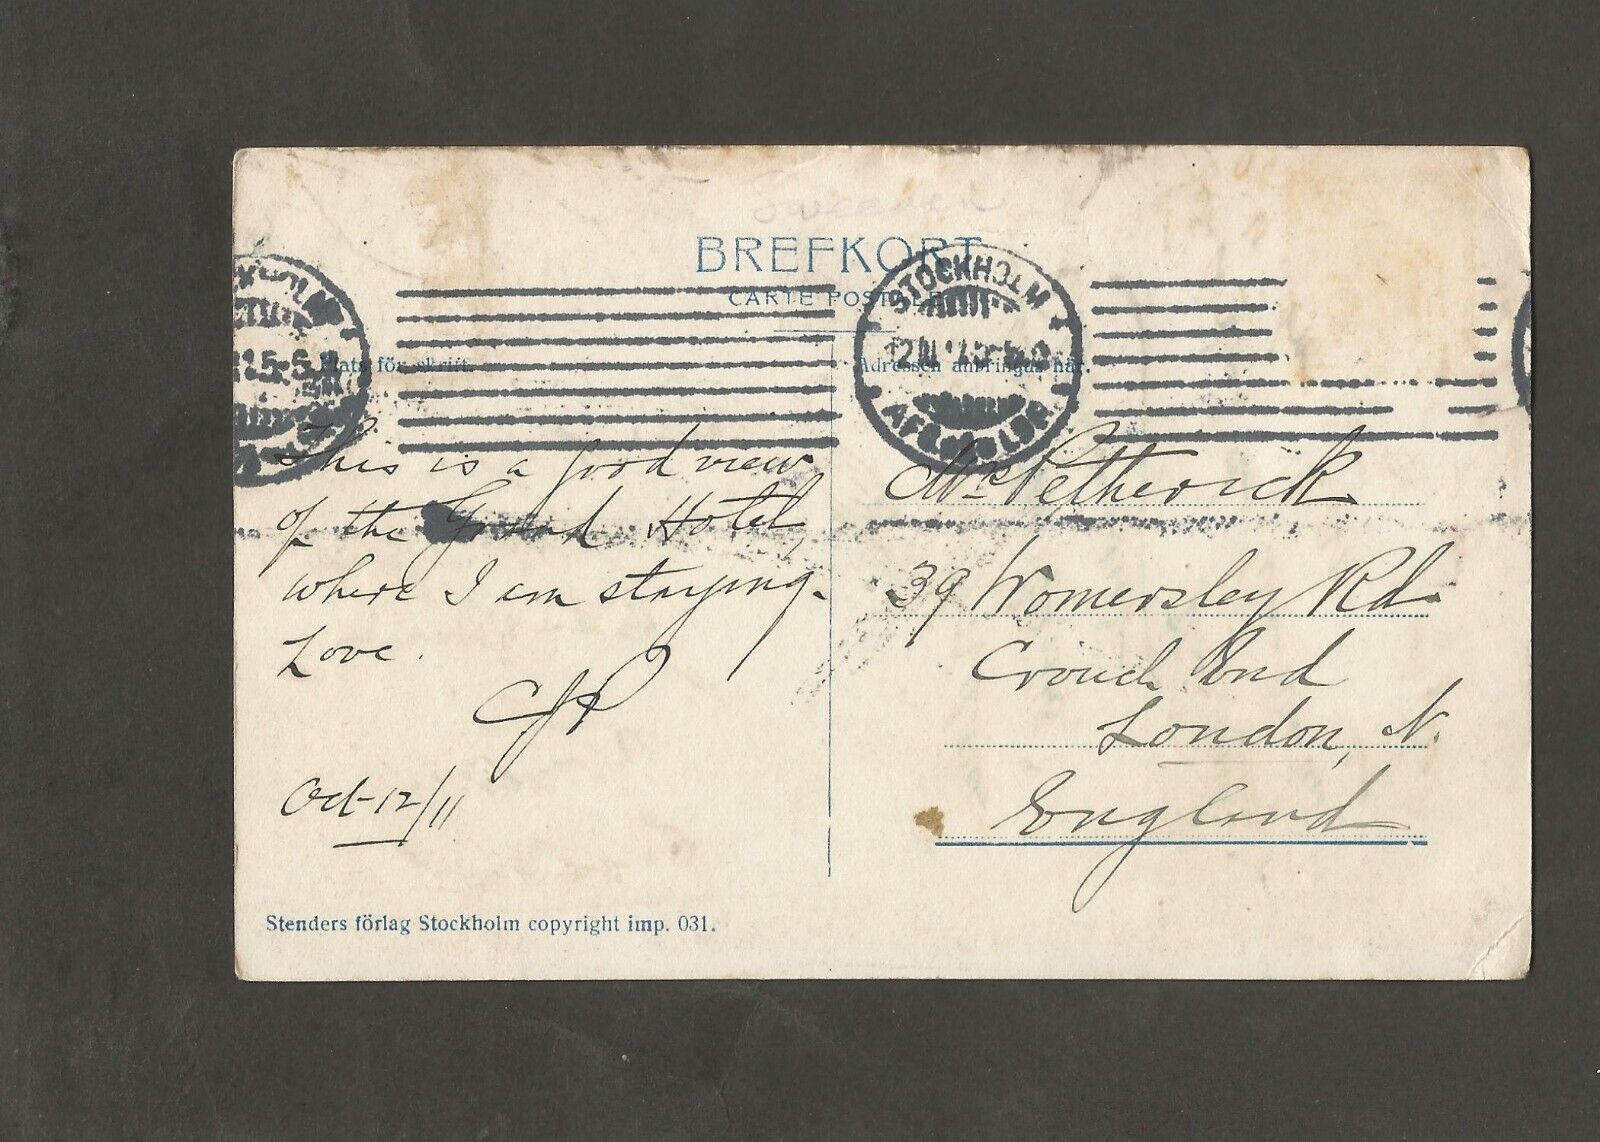 Sweden
BREFKORT
CARTE POSTALE
Plats för skrift.
Adressen anbringas här.
STOCKHOLM
This is a good view
of the Grand Hotel,
where I am staying.
Love.
CJP
Oct-12/11
Mrs Petherick
39 Womersley Rd
Crouch End
London, N.
England
Stenders förlag Stockholm copyright imp. 031.